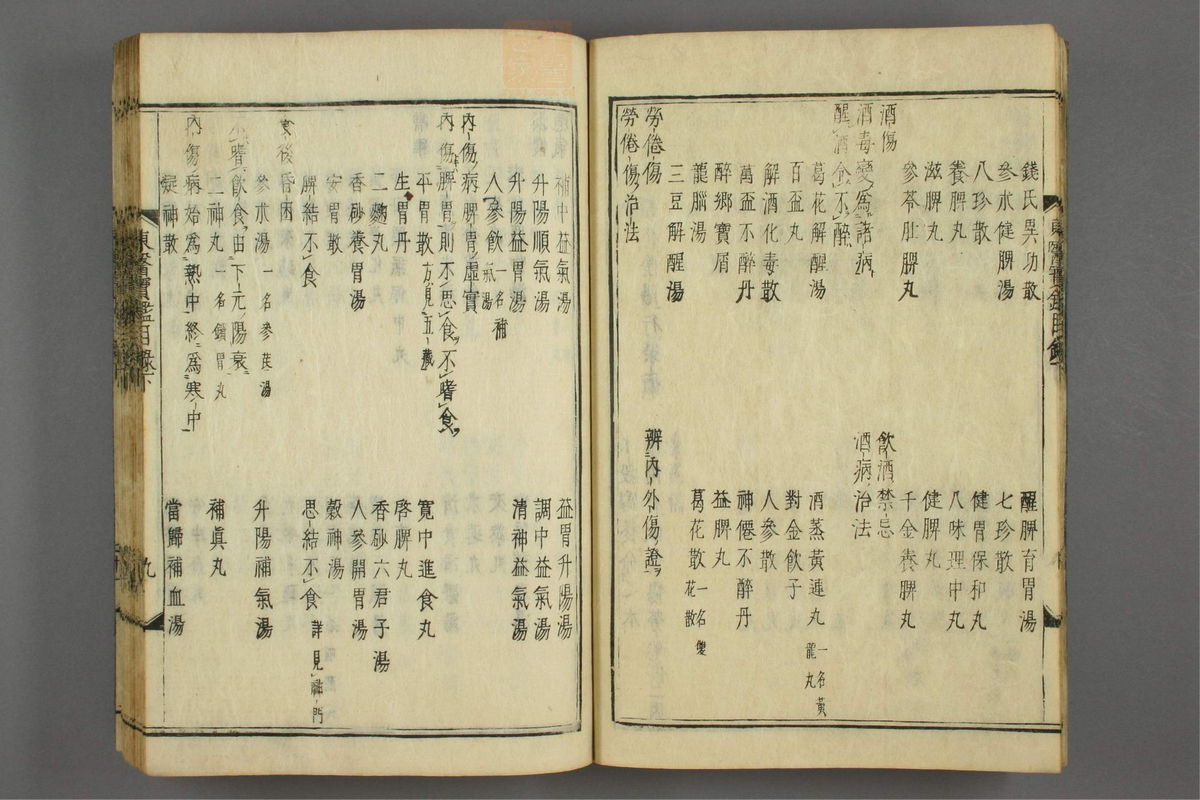 錢氏異功散 醒脾育胃湯
參朮健脾湯 七珍散
八珍散 健胃保和丸
養脾丸 八味理中丸
滋脾丸 健脾丸
參苓壯脾丸 千金養脾丸
酒傷 飲酒禁忌
酒毒變爲諸病 酒病治法
醒酒令不醉
葛花解酲湯 酒蒸黃連丸 一名黃龍丸
百盃丸 對金飲子
解酒化毒散 人參散
萬盃不醉丹 神僊不醉丹
醉鄉寶屑 益脾丸
龍腦湯 葛花散 一名雙花散
三豆解酲湯
勞倦傷 辨內外傷證
勞倦傷治法
補中益氣湯 益胃升陽湯
升陽順氣湯 調中益氣湯
升陽益胃湯 清神益氣湯
人參飲 一名補氣湯
內傷病脾胃虛實
內傷脾胃則不思食不嗜食
平胃散 方見五藏 寬中進食丸
生胃丹 啓脾丸
二麴丸 香砂六君子湯
香砂養胃湯 人參開胃湯
安胃散 穀神湯
脾結不食 思結不食 詳見神門
食後昏困
參朮湯 一名參芪湯 升陽補氣湯
不嗜飲食由下元陽衰
二神丸 一名鎖胃丸 補眞丸
內傷病始爲熱中終爲寒中
凝神散 當歸補血湯
東醫寶鑑目錄下
九